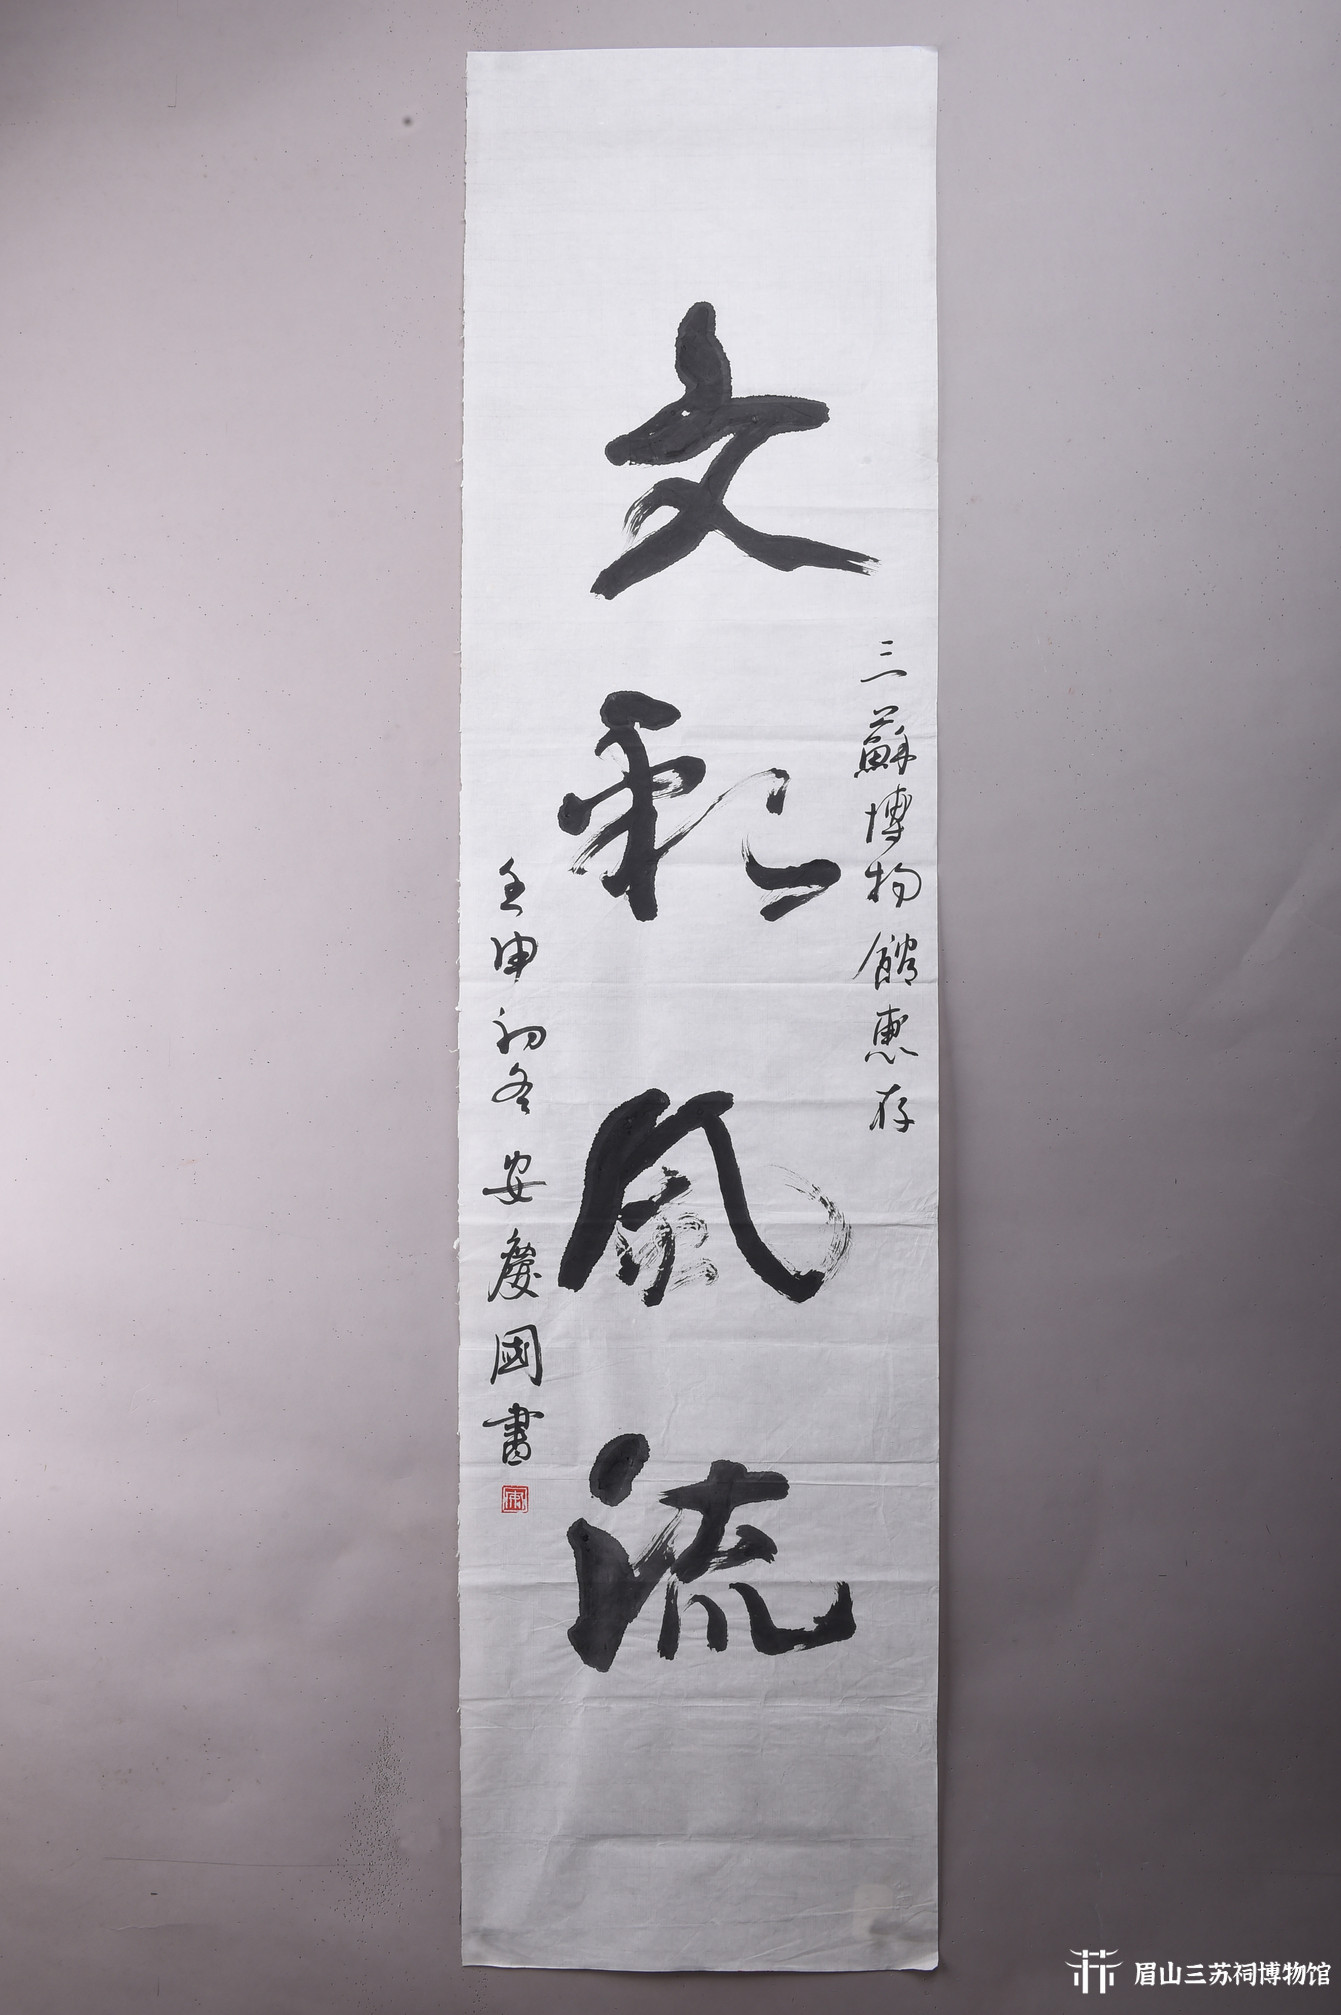 三蘇博物館惠存
文彩風流
壬申初冬安慶國書
眉山三苏祠博物馆